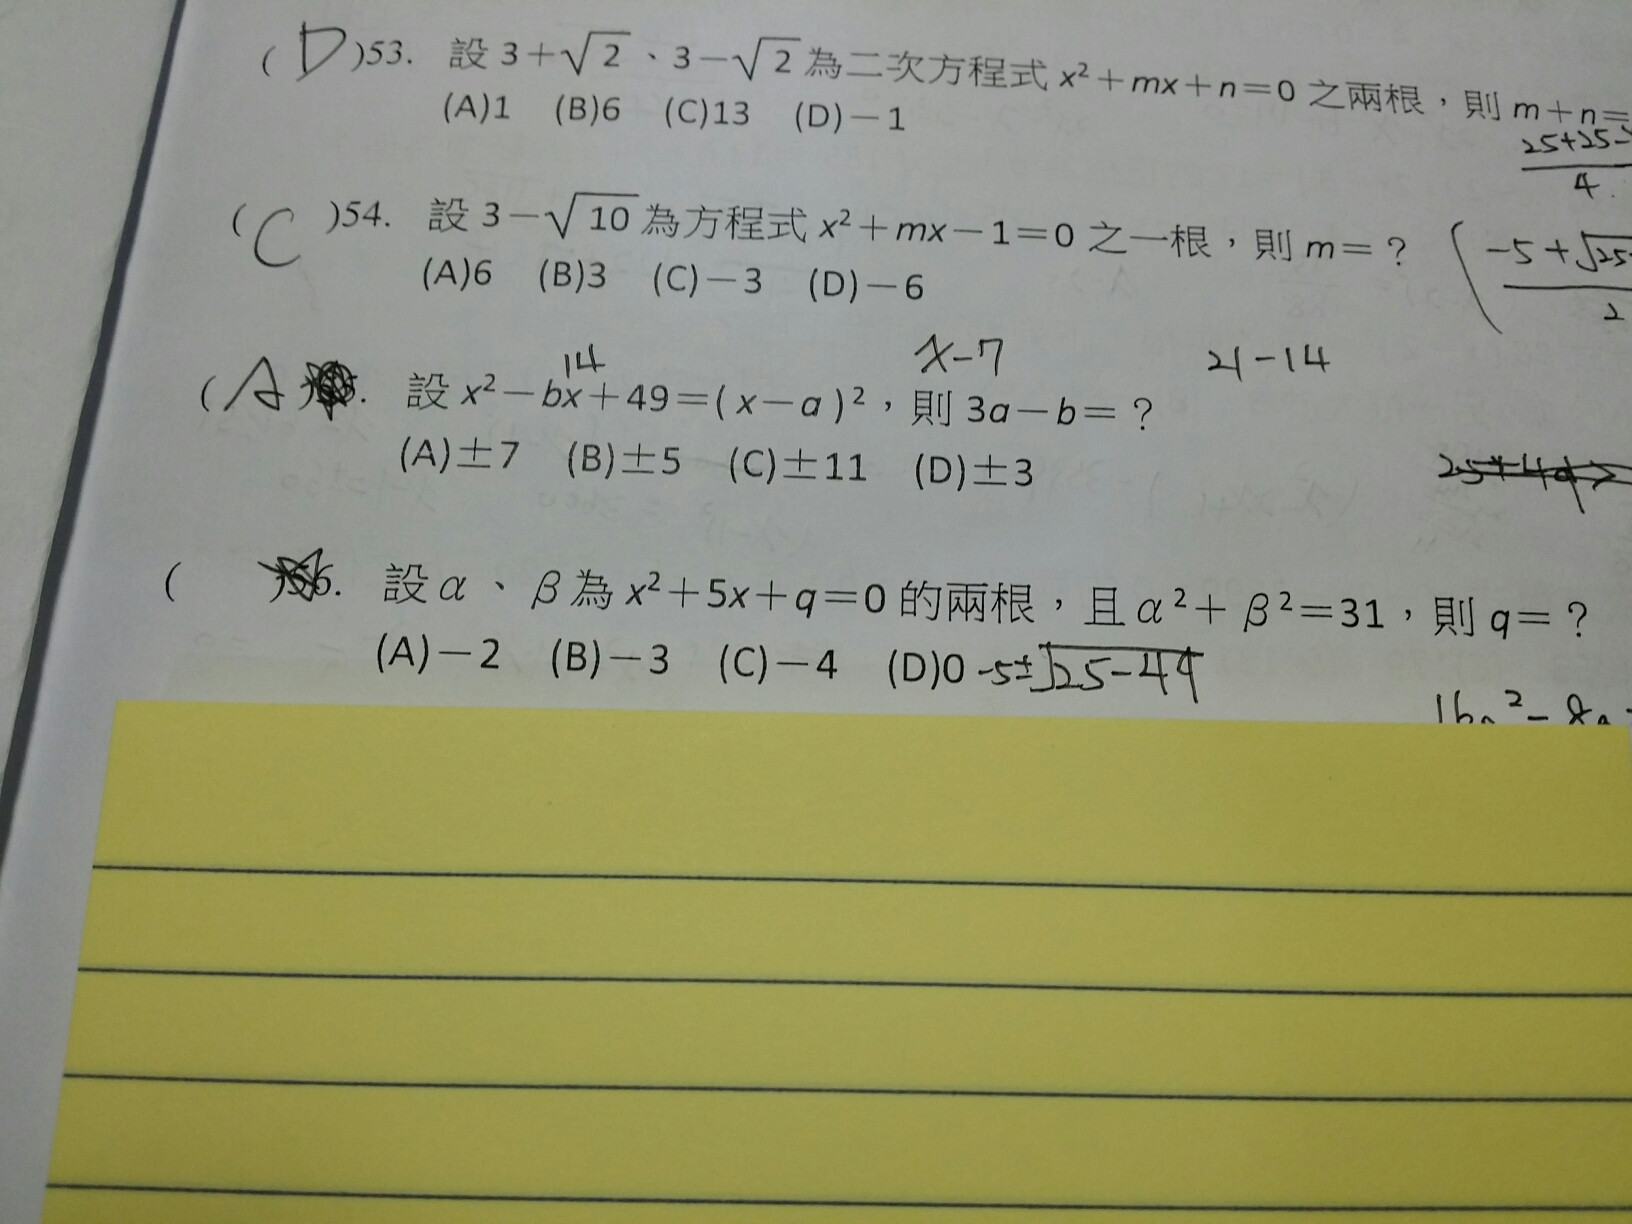 ( D )53. 設 3+√2 、3-√2 為二次方程式 x²+mx+n=0 之兩根，則 m+n=
(A)1 (B)6 (C)13 (D)-1
25+25-
4
( C )54. 設 3-√10 為方程式 x²+mx-1=0 之一根，則 m=？
(A)6 (B)3 (C)-3 (D)-6
-5+√25
2
14 x-7 21-14
( A 設 x²-bx+49=(x-a)²，則 3a-b=？
(A)±7 (B)±5 (C)±11 (D)±3
( )56. 設 α 、 β 為 x²+5x+q=0 的兩根，且 α²+β²=31，則 q=？
(A)-2 (B)-3 (C)-4 (D)0 -5±√25-4q